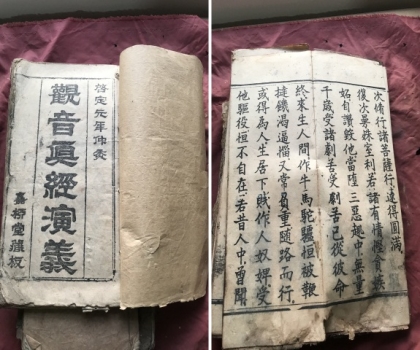 啓定元年仲
觀音眞經演義
堂藏板
次脩行諸菩薩行速得圓滿
復次曼殊室利若諸有情慳貪嫉
妬自讚毀他當墮三惡趣中無量
千歲受諸劇苦受劇苦已從彼命
終來生人間作牛馬駝驢恒被鞭
撻飢渴逼惱又常負重隨路而行
或得為人生居下賤作人奴婢受
他驅役恒不自在若昔人中曾聞